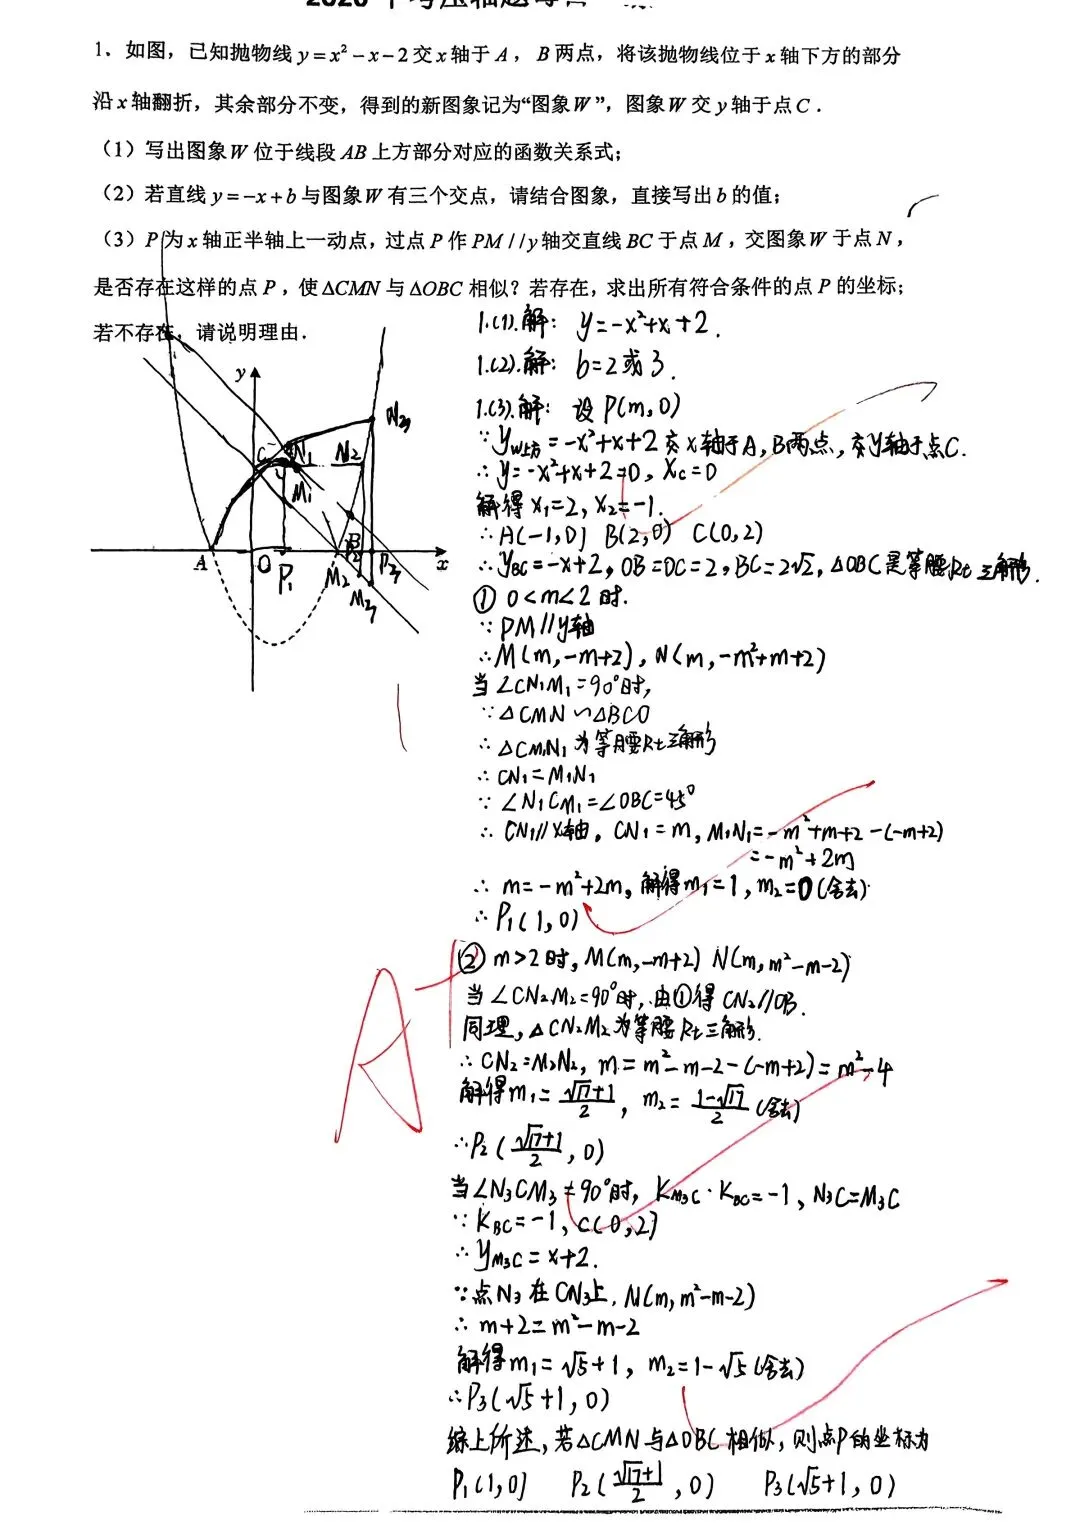 1．如图，已知抛物线 y=x²-x-2 交 x 轴于 A，B 两点，将该抛物线位于 x 轴下方的部分
沿 x 轴翻折，其余部分不变，得到的新图象记为“图象W”，图象W 交 y 轴于点 C．
（1）写出图象W 位于线段 AB 上方部分对应的函数关系式；
（2）若直线 y=-x+b 与图象W 有三个交点，请结合图象，直接写出 b 的值；
（3）P 为 x 轴正半轴上一动点，过点 P 作 PM//y 轴交直线 BC 于点 M，交图象W 于点 N，
是否存在这样的点 P，使 △CMN 与 △OBC 相似？若存在，求出所有符合条件的点 P 的坐标；
若不存在，请说明理由．
y
C
N₁
N₂
N₃
M₁
A
O
P₁
B
P₂
P₃
x
M₂
M₃
1.(1).解： y=-x²+x+2.
1.(2).解： b=2或3.
1.(3).解： 设P(m,0)
∵yW上方=-x²+x+2交x轴于A,B两点，交y轴于点C.
∴y=-x²+x+2=0, Xc=0
解得x₁=2, x₂=-1.
∴A(-1,0) B(2,0) C(0,2)
∴yBC=-x+2, OB=OC=2, BC=2√2, △OBC是等腰Rt三角形.
① 0<m<2时.
∵PM//y轴
∴M(m,-m+2), N(m,-m²+m+2)
当∠CN₁M₁=90°时,
∵△CMN∽△BCO
∴△CM₁N₁为等腰Rt三角形
∴CN₁=M₁N₁
∵∠N₁CM₁=∠OBC=45°
∴CN₁//x轴, CN₁=m, M₁N₁=-m²+m+2-(-m+2)
=-m²+2m
∴m=-m²+2m, 解得m₁=1, m₂=0(舍去)
∴P₁(1,0)
② m>2时, M(m,-m+2) N(m,m²-m-2)
当∠CN₂M₂=90°时, 由①得CN₂//OB.
同理, △CN₂M₂为等腰Rt三角形.
∴CN₂=M₂N₂, m=m²-m-2-(-m+2)=m²-4
解得m₁=(√17+1)/2, m₂=(1-√17)/2(舍去)
∴P₂((√17+1)/2,0)
当∠N₃CM₃=90°时, KM₃C·KBC=-1, N₃C=M₃C
∵KBC=-1, C(0,2)
∴yM₃C=x+2.
∵点N₃在CN₃上, N(m,m²-m-2)
∴m+2=m²-m-2
解得m₁=√5+1, m₂=1-√5(舍去)
∴P₃(√5+1,0)
综上所述, 若△CMN与△OBC相似, 则点P的坐标为
P₁(1,0) P₂((√17+1)/2,0) P₃(√5+1,0)
A+